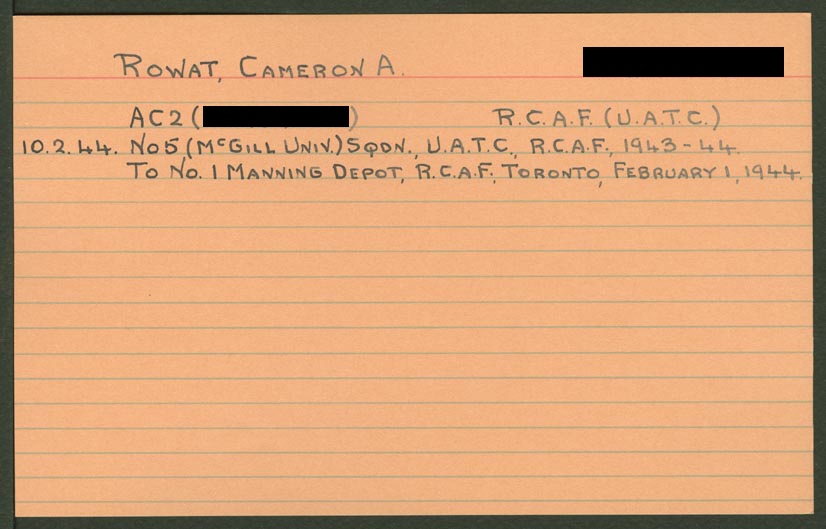 ROWAT, CAMERON A.
AC2 ( ) R.C.A.F. (U.A.T.C.)
10.2.44. NO5 (MCGILL UNIV.) SQDN., U.A.T.C., R.C.A.F., 1943-44.
TO NO. 1 MANNING DEPOT, R.C.A.F., TORONTO, FEBRUARY 1, 1944.